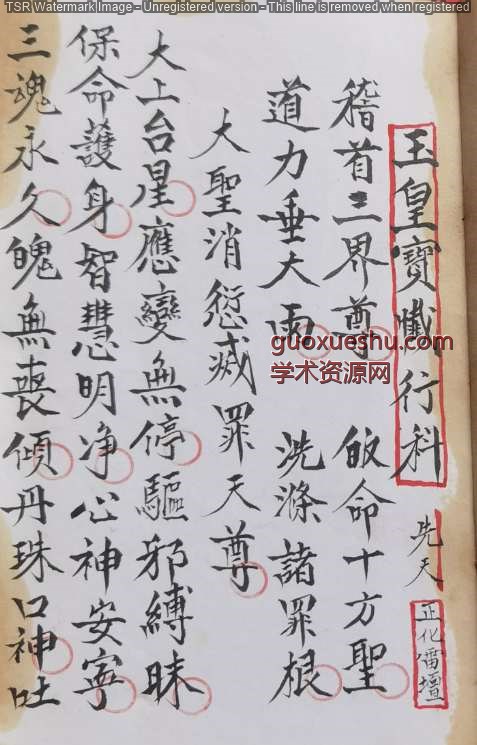 TSR Watermark Image - Unregistered version - This line is removed when registered
玉皇寶懺行科 先天 正化雷壇
稽首三界尊 皈命十方聖
道力垂大雨 洗滌諸罪根
大聖消愆滅罪天尊
大上台星應變無停驅邪縛昧
保命護身智慧明净心神安寧
三魂永久魄無喪傾丹珠口神吐
guoxueshu.com
学术资源网